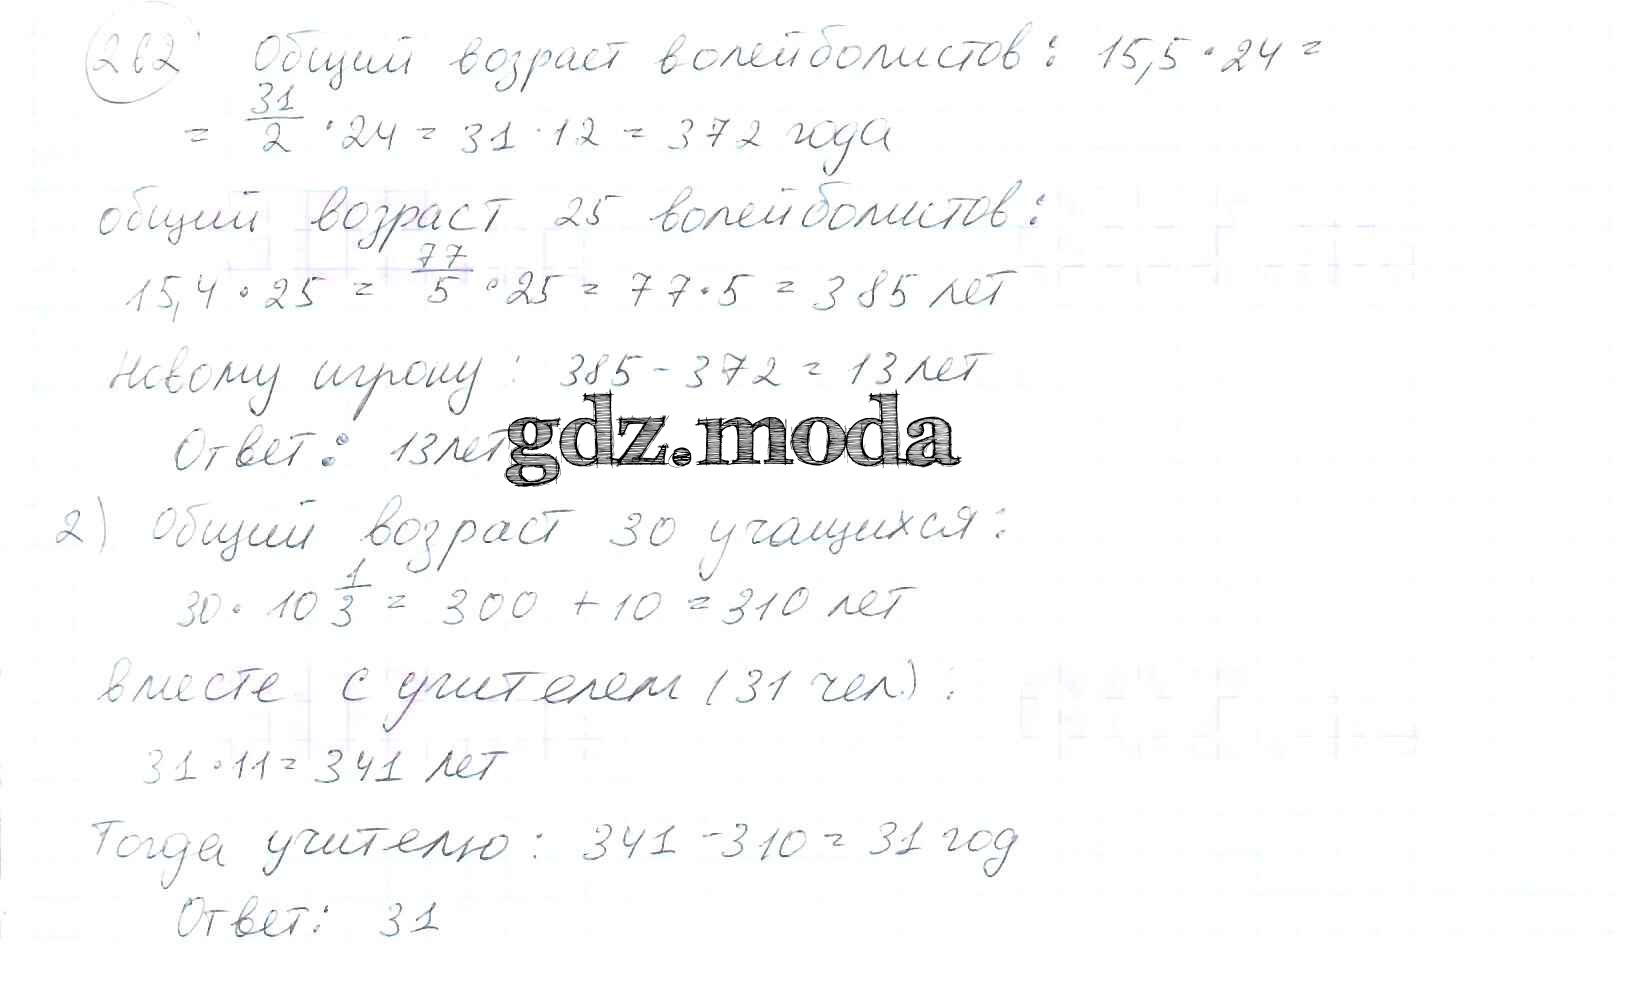 262 Общий возраст волейболистов: 15,5 · 24 =
= 31/2 · 24 = 31 · 12 = 372 года
общий возраст 25 волейболистов:
15,4 · 25 = 77/5 · 25 = 77 · 5 = 385 лет
Новому игроку: 385 - 372 = 13 лет
Ответ: 13 лет
gdz.moda
2) Общий возраст 30 учащихся:
30 · 10 1/3 = 300 + 10 = 310 лет
вместе с учителем (31 чел.):
31 · 11 = 341 лет
Тогда учителю: 341 - 310 = 31 год
Ответ: 31